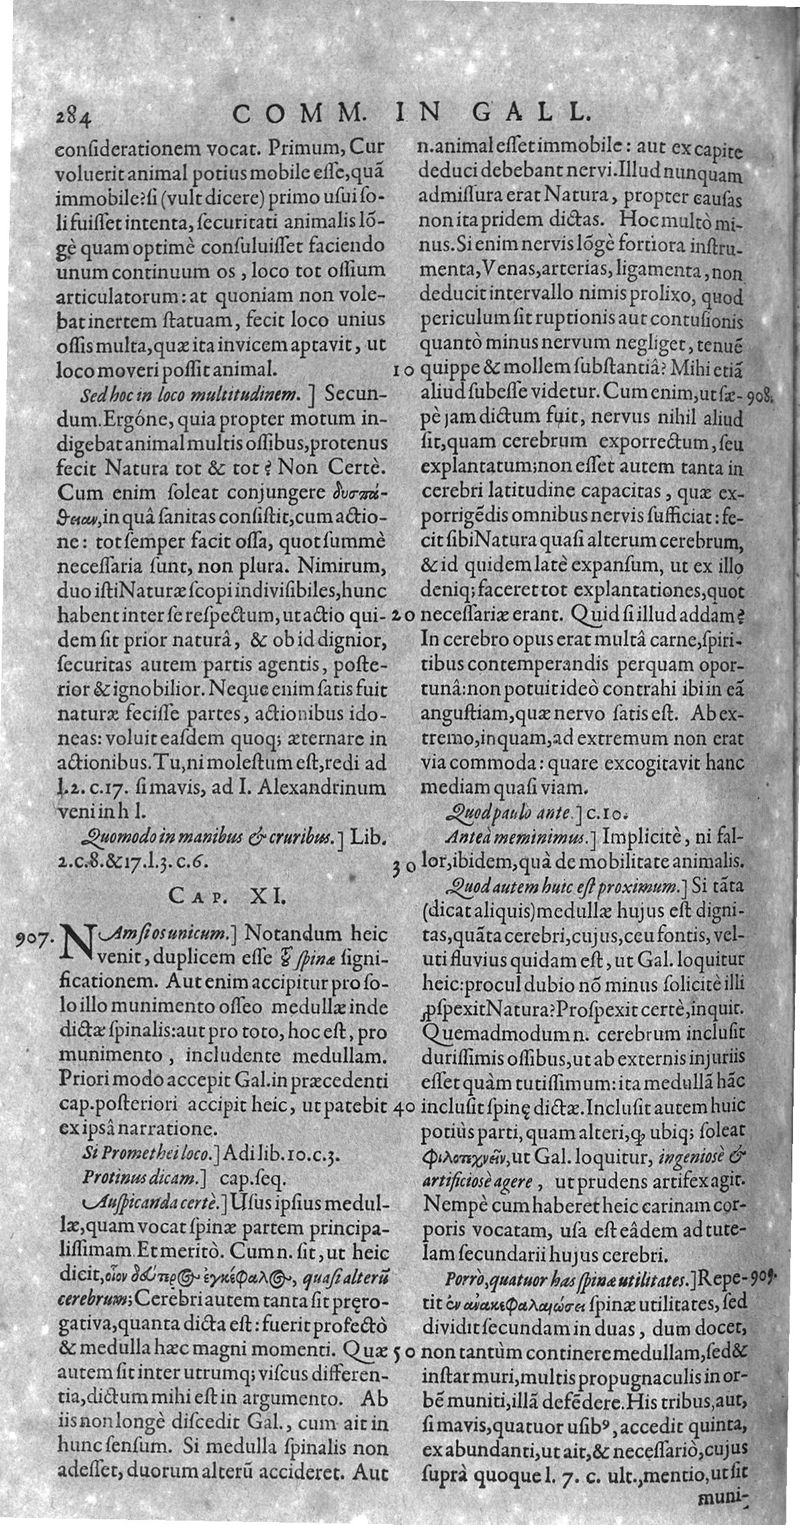 284 COMM. IN GALL.
conſiderationem vocat. Primum, Cur
voluerit animal potius mobile eſſe, quā
immobile? ſi (vult dicere) primo uſui ſo-
li fuiſſet intenta, ſecuritati animalis lō-
gè quam optimè conſuluiſſet faciendo
unum continuum os, loco tot oſſium
articulatorum: at quoniam non vole-
bat inertem ſtatuam, fecit loco unius
oſſis multa, quæ ita invicem aptavit, ut
loco moveri poſſit animal.
Sed hoc in loco multitudinem. ] Secun-
dum. Ergóne, quia propter motum in-
digebat animal multis oſſibus, protenus
fecit Natura tot & tot? Non Certè.
Cum enim ſoleat conjungere δυσπά-
θειαν, in quâ ſanitas conſiſtit, cum actio-
ne: tot ſemper facit oſſa, quot ſummè
neceſſaria ſunt, non plura. Nimirum,
duo iſti Naturæ ſcopi indiviſibiles, hunc
habent inter ſe reſpectum, ut actio qui-
dem ſit prior naturâ, & ob id dignior,
ſecuritas autem partis agentis, poſte-
rior & ignobilior. Neque enim ſatis fuit
naturæ feciſſe partes, actionibus ido-
neas: voluit eaſdem quoq; æternare in
actionibus. Tu, ni moleſtum eſt, redi ad
l. 2. c. 17. ſi mavis, ad I. Alexandrinum
veni in h l.
Quomodo in manibus & cruribus. ] Lib.
2. c. 8. & 17. l. 3. c. 6.
CAP. XI.
907. NAm ſi os unicum. ] Notandum heic
venit, duplicem eſſe ſpinæ ſigni-
ficationem. Aut enim accipitur pro ſo-
lo illo munimento oſſeo medullæ inde
dictæ ſpinalis: aut pro toto, hoc eſt, pro
munimento, includente medullam.
Priori modo accepit Gal. in præcedenti
cap. poſteriori accipit heic, ut patebit
ex ipsâ narratione.
Si Promethei loco. ] Adi lib. 10. c. 3.
Protinus dicam. ] cap. ſeq.
Auſpicanda certè. ] Uſus ipſius medul-
læ, quam vocat ſpinæ partem principa-
liſſimam. Et meritò. Cum n. ſit, ut heic
dicit, οἷον δεύτερος ἐγκέφαλος, quaſi alterū
cerebrum; Cerebri autem tanta ſit pręro-
gativa, quanta dicta eſt: fuerit profectò
& medulla hæc magni momenti. Quæ
autem ſit inter utrumq; viſcus differen-
tia, dictum mihi eſt in argumento. Ab
iis non longè diſcedit Gal., cum ait in
hunc ſenſum. Si medulla ſpinalis non
adeſſet, duorum alterū accideret. Aut
n. animal eſſet immobile: aut ex capite
deduci debebant nervi. Illud nunquam
admiſſura erat Natura, propter cauſas
non ita pridem dictas. Hoc multò mi-
nus. Si enim nervis lōgè fortiora inſtru-
menta, Venas, arterias, ligamenta, non
deducit intervallo nimis prolixo, quod
periculum ſit ruptionis aut contuſionis
quantò minus nervum negliget, tenuē
10 quippe & mollem ſubſtantiâ? Mihi etiā
aliud ſubeſſe videtur. Cum enim, ut ſæ- 908.
pè jam dictum fuit, nervus nihil aliud
ſit, quam cerebrum exporrectum, ſeu
explantatum; non eſſet autem tanta in
cerebri latitudine capacitas, quæ ex-
porrigēdis omnibus nervis ſufficiat: fe-
cit ſibi Natura quaſi alterum cerebrum,
& id quidem latè expanſum, ut ex illo
deniq; faceret tot explantationes, quot
20 neceſſariæ erant. Quid ſi illud addam?
In cerebro opus erat multâ carne, ſpiri-
tibus contemperandis perquam opor-
tunâ: non potuit ideò contrahi ibi in eā
anguſtiam, quæ nervo ſatis eſt. Ab ex-
tremo, inquam, ad extremum non erat
via commoda: quare excogitavit hanc
mediam quaſi viam.
Quod paulò ante. ] c. 10.
Anteà meminimus. ] Implicitè, ni fal-
30 lor, ibidem, quà de mobilitate animalis.
Quod autem huic eſt proximum. ] Si tāta
(dicat aliquis) medullæ hujus eſt digni-
tas, quāta cerebri, cujus, ceu fontis, vel-
uti fluvius quidam eſt, ut Gal. loquitur
heic: procul dubio nō minus ſolicitè illi
ꝓſpexit Natura? Proſpexit certè, inquit.
Quemadmodum n. cerebrum incluſit
duriſſimis oſſibus, ut ab externis injuriis
eſſet quàm tutiſſimum: ita medullā hāc
40 incluſit ſpinę dictæ. Incluſit autem huic
potiùs parti, quam alteri, ꝙ ubiq; ſoleat
φιλοτεχνεῖν, ut Gal. loquitur, ingenioſè &
artificiosè agere, ut prudens artifex agit.
Nempè cum haberet heic carinam cor-
poris vocatam, uſa eſt eâdem ad tute-
lam ſecundarii hujus cerebri.
Porrò, quatuor has ſpinæ utilitates. ] Repe- 909.
tit ἐν ἀνακεφαλαιώσει ſpinæ utilitates, ſed
dividit ſecundam in duas, dum docet,
50 non tantùm continere medullam, ſed &
inſtar muri, multis propugnaculis in or-
bē muniti, illā defēdere. His tribus, aut,
ſi mavis, quatuor uſibꝰ, accedit quinta,
ex abundanti, ut ait, & neceſſariò, cujus
ſuprà quoque l. 7. c. ult., mentio, ut ſit
muni-